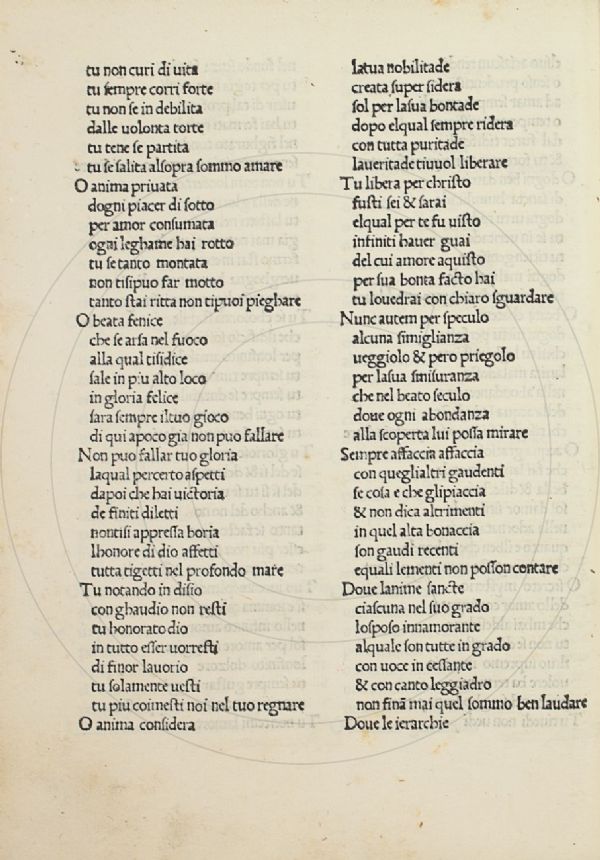 tu non curi di uita
tu sempre corri forte
tu non se in debilita
dalle uolonta torte
tu tene se partita
tu se salita alsopra sommo amare
O anima priuata
dogni piacer di sotto
per amor consumata
ogni leghame hai rotto
tu se tanto montata
non tisipuo far motto
tanto stai ritta non tipuoi pieghare
O beata fenice
che se arsa nel fuoco
alla qual tisidice
sale in piu alto loco
in gloria felice
sara sempre iltuo gioco
di qui apoco gia non puo fallare
Non puo fallar tuo gloria
laqual percerto aspetti
dapoi che hai uictoria
de finiti diletti
nontisi appressa boria
lhonore di dio affetti
tutta tigetti nel profondo mare
Tu notando in disio
con ghaudio non resti
tu honorato dio
in tutto esser uorresti
di finor lauorio
tu solamente uesti
tu piu coimesti noi nel tuo regnare
O anima considera
latua nobilitade
creata super sidera
sol per lasua bontade
dopo elqual sempre ridera
con tutta puritade
laueritade tiuuol liberare
Tu libera per christo
fusti sei & sarai
elqual per te fu uisto
infiniti hauer guai
del cui amore aquisto
per sua bonta facto hai
tu louedrai con chiaro sguardare
Nunc autem per speculo
alcuna simiglianza
ueggiolo & pero priegolo
per lasua smisuranza
che nel beato seculo
doue ogni abondanza
alla scoperta lui possa mirare
Sempre affaccia affaccia
con queglialtri gaudenti
se cosa e che glipiaccia
& non dica altrimenti
in quel alta bonaccia
son gaudi recenti
equali lementi non posson contare
Doue lanime sancte
ciascuna nel suo grado
losposo innamorante
alquale son tutte in grado
con uoce in cessante
& con canto leggiadro
non finā mai quel sommo ben laudare
Doue le ierarchie